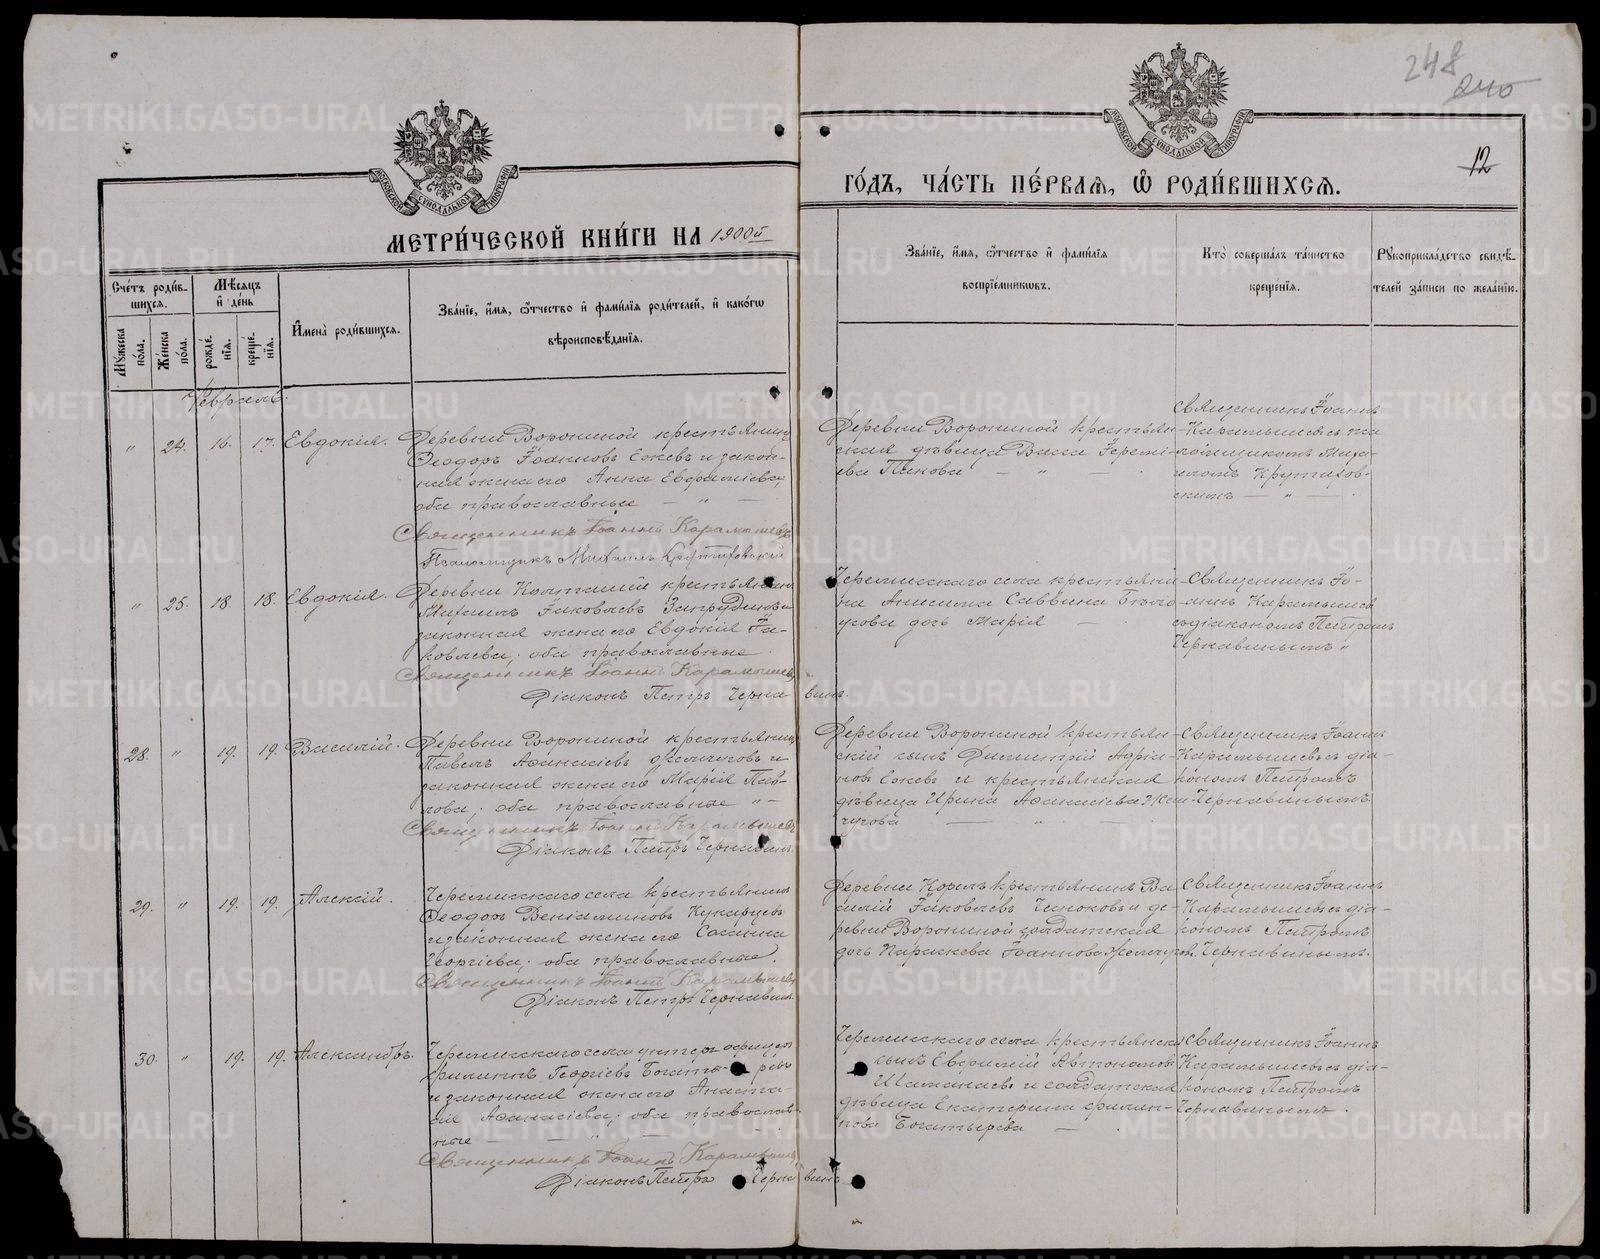 248
240
12
МЕТРИ́ЧЕСКОЙ КНИ́ГИ НА 1900й
ГО́ДЪ, ЧА́СТЬ ПЕ́РВАѦ, Ѡ҆ РОДИ́ВШИХСѦ.
МОСКОВСКОЙ СѴНОДАЛЬНОЙ ТИПОГРАФІИ
МОСКОВСКОЙ СѴНОДАЛЬНОЙ ТИПОГРАФІИ
Сче́тъ роди́в-
шихся.
Мꙋ́жеска по́ла.
Же́нска по́ла.
Мѣ́сяцъ и҆ де́нь
рожде́нїѧ.
креще́нїѧ.
И҆мена̀ роди́вшихсѧ.
Зва́нїе, и҆́мѧ, ѻ҆́тчество и҆ фами́лїѧ роди́телей, и҆ како́гѡ
вѣроисповѣ́данїѧ.
Зва́нїе, и҆́мѧ, ѻ҆́тчество и҆ фами́лїѧ
воспрїе́мникѡвъ.
Кто̀ соверша́лъ та́инство
креще́нїѧ.
Рꙋкоприкла́дство свидѣ́-
телей за́писи по жела́нїю.
Февраль.
" 24. 16. 17. Евдокія.
Деревни Ворониной крестьянинъ
Ѳеодоръ Іоанновъ Ежевъ и закон-
ная жена его Анна Евфиміева,
оба православные — " —
Священникъ Іоаннъ Карамышевъ
Псаломщикъ Михаилъ Крутиховскій
Деревни Ворониной крестьян-
ская дѣвица Васса Іеремі-
ева Панова — " —
Священникъ Іоаннъ
Карамышевъ съ пса-
ломщикомъ Миха-
иломъ Крутихов-
скимъ — " —
" 25. 18. 18. Евдокія.
Деревни Колташей крестьянинъ
Михаилъ Іаковлевъ Запрудинъ и
законная жена его Евдокія Іа-
ковлева; оба православные.
Священникъ Іоаннъ Карамышевъ
Діаконъ Петръ Чернавинъ.
Черемисскаго села крестьяни-
на Анисима Саввина Бѣло-
усова дочь Марія —
Священникъ Іо-
аннъ Карамышев
съ діакономъ Петромъ
Чернавинымъ "
28. " 19. 19. Василій.
Деревни Ворониной крестьянинъ
Павелъ Аѳанасіевъ Жемчуговъ и
законная жена его Марія Пав-
лова; оба православные " —
Священникъ Іоаннъ Карамышевъ
Діаконъ Петръ Чернавинъ.
Деревни Ворониной крестьян-
скій сынъ Димитрій Адріа-
новъ Ежевъ и крестьянская
дѣвица Ирина Аѳанасіева Жем-
чугова — " —
Священникъ Іоаннъ
Карамышевъ съ діа-
кономъ Петромъ
Чернавинымъ.
29. " 19. 19. Алексій.
Черемисскаго села крестьянинъ
Ѳеодоръ Веніаминовъ Кукарцевъ
и законная жена его Сосанна
Георгіева; оба православные.
Священникъ Іоаннъ Карамышевъ
Діаконъ Петръ Чернавинъ.
Деревни Корелъ крестьянинъ Ва-
силій Іаковлевъ Чесноковъ и де-
ревни Ворониной солдатская
дочь Параскева Іоаннова Жемчугова.
Священникъ Іоаннъ
Карамышевъ съ діа-
кономъ Петромъ
Чернавинымъ.
30. " 19. 19. Александръ.
Черемисскаго села унтеръ офицеръ
Филиппъ Георгіевъ Богатыревъ
и законная жена его Анаста-
сія Аѳанасіева; оба православ-
ные — " —
Священникъ Іоаннъ Карамышевъ
Діаконъ Петръ Чернавинъ
Черемисскаго села крестьянскій
сынъ Евфимій Автономовъ
Шаманаевъ и солдатская
дѣвица Екатерина Филип-
пова Богатырева — .
Священникъ Іоаннъ
Карамышевъ съ діа-
кономъ Петромъ
Чернавинымъ.
METRIKI.GASO-URAL.RU